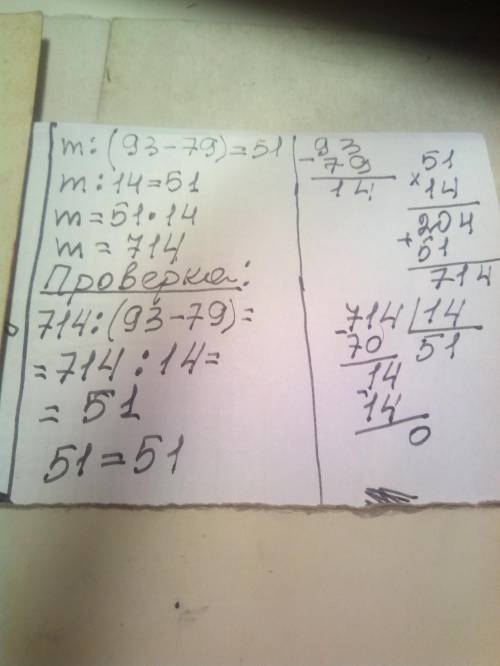 m:(93-79)=51
m:14=51
m=51·14
m=714
Проверка:
714:(93-79)=
=714:14=
=51
51=51
93
-79
14
51
×14
204
+51
714
-714 14
70 51
14
-14
0